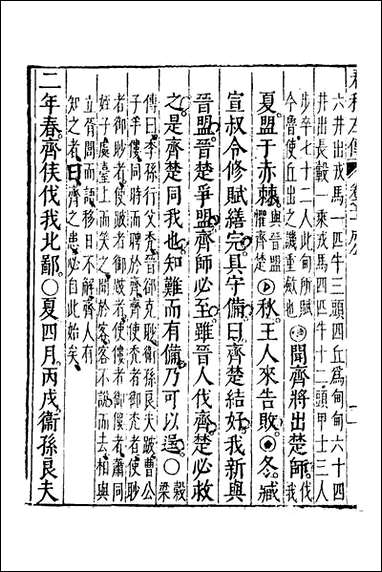 六井出戎馬一匹牛三頭四丘爲甸甸六十四
井出長轂一乘戎馬四匹牛十二頭甲士三人
步卒七十二人此甸所賦
今魯使丘出之譏重斂也 聞齊將出楚師 伐我
夏盟于赤棘 與晉盟懼齊楚 秋王人來告敗 冬臧
宣叔令修賦繕完具守備曰齊楚結好我新與
晉盟晉楚爭盟齊師必至雖晉人伐齊楚必救
之是齊楚同我也知難而有備乃可以逞○ 穀梁
傳曰季孫行父禿晉郤克眇衞孫良夫跛曹公
子手僂同時而聘於齊齊使禿者御禿者使眇
者御眇者使跛者御跛者使僂者御僂者蕭同
姪子處臺上而笑之聞於客客不說而去相與
立胥閭而語移日不解齊人有
知之者曰齊之患必自此始矣
二年春齊侯伐我北鄙○夏四月丙戌衞孫良夫